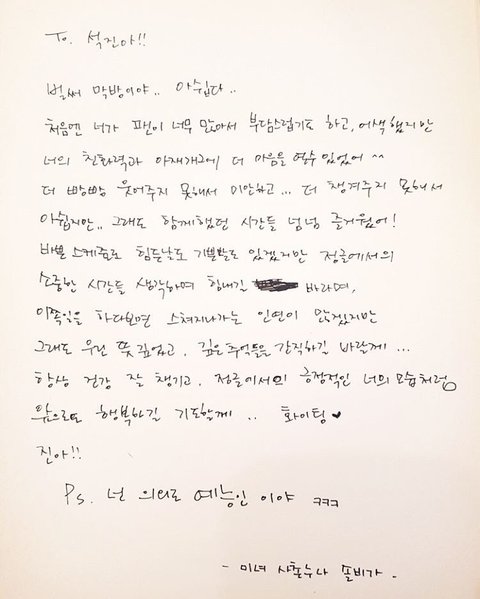 To. 석진아!!
벌써 막방이야.. 아쉽다..
처음엔 너가 팬이 너무 많아서 부담스럽기도 하고, 어색했지만
너의 친화력과 아재개그에 더 마음을 열수 있었어 ^^
더 빵빵 웃어주지 못해서 미안하고... 더 챙겨주지 못해서
아쉽지만.. 그래도 함께했던 시간들 넘넘 즐거웠어!
바쁜 스케줄로 힘든날도 기쁠날도 있겠지만 정글에서의
소중한 시간들 생각하며 힘내길 바라며,
이쪽일을 하다보면 스쳐지나가는 인연이 많겠지만
그래도 우린 뜻깊었고, 깊은 추억들을 간직하길 바랄게...
항상 건강 잘 챙기고, 정글에서의 긍정적인 너의 모습처럼
앞으로도 행복하길 기도할게.. 화이팅♥
진아!!
Ps. 넌 의외로 예능인 이야 ㅋㅋㅋ
- 미녀 사촌누나 솔비가 -